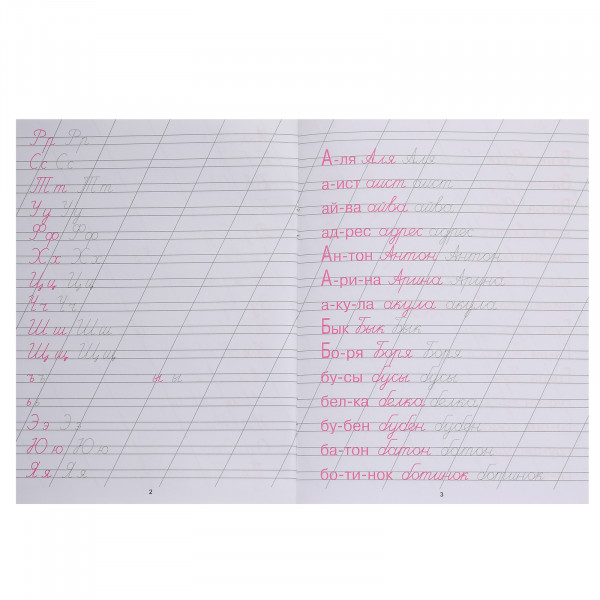 Рр Рр
Сс Сс
Тт Тт
Уу Уу
Фф Фф
Хх Хх
Цц Цц
Чч Чч
Шш Шш
Щщ Щщ
ъ ъ ы ы
ь ь
Ээ Ээ
Юю Юю
Яя Яя
2
А-ля Аля Аля
а-ист аист аист
ай-ва айва айва
ад-рес адрес адрес
Ан-тон Антон Антон
А-ри-на Арина Арина
а-ку-ла акула акула
Бык Бык Бык
Бо-ря Боря Боря
бу-сы бусы бусы
бел-ка белка белка
бу-бен бубен бубен
ба-тон батон батон
бо-ти-нок ботинок ботинок
3